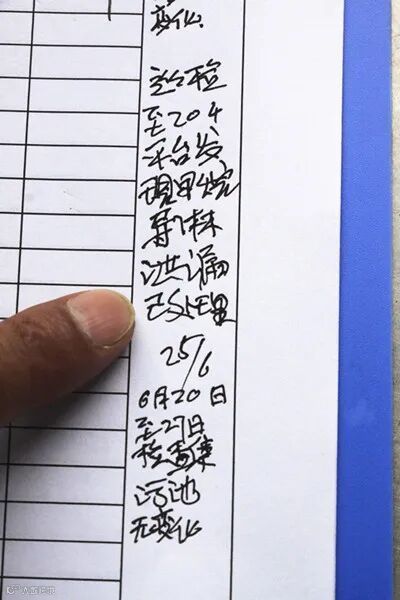 变化
巡检
至204
平台发
现甲烷
导淋
泄漏
已处理
25/6
6月20日
至27日
检查集
污池
无变化